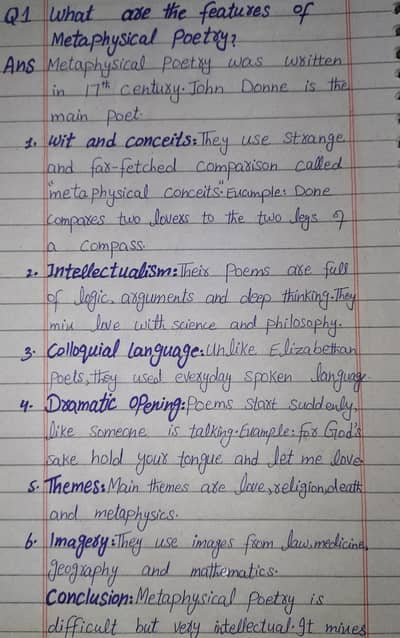 Q1 What are the features of
Metaphysical Poetry?
Ans Metaphysical Poetry was written
in 17th century. John Donne is the
main Poet.
1. Wit and conceits: They use strange
and far-fetched comparison called
"metaphysical conceits". Example: Done
compares two lovers to the two legs of
a compass.
2. Intellectualism: Their Poems are full
of logic, arguments and deep thinking. They
mix love with science and philosophy.
3. Colloquial language: Unlike Elizabethan
Poets, they used everyday spoken language.
4. Dramatic Opening: Poems start suddenly,
like someone is talking. Example: for God's
sake hold your tongue and let me love.
5. Themes: Main themes are love, religion, death
and metaphysics.
6. Imagery: They use images from law, medicine,
geography and mathematics.
Conclusion: Metaphysical Poetry is
difficult but very intellectual. It mixes